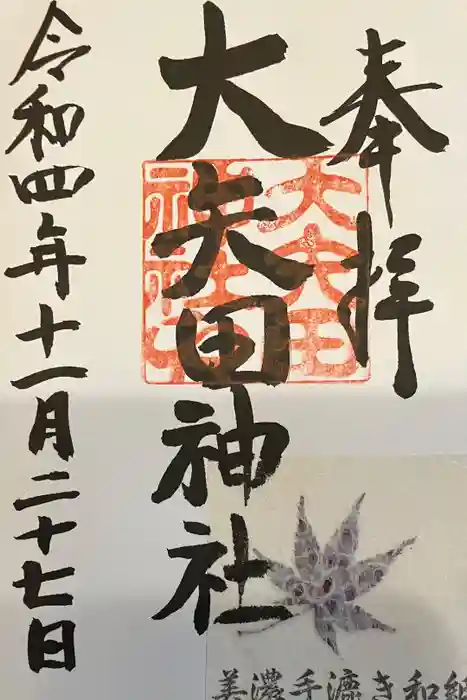 奉拝
大矢田神社
令和四年十一月二十七日
大矢田
神社
美濃手漉き和紙